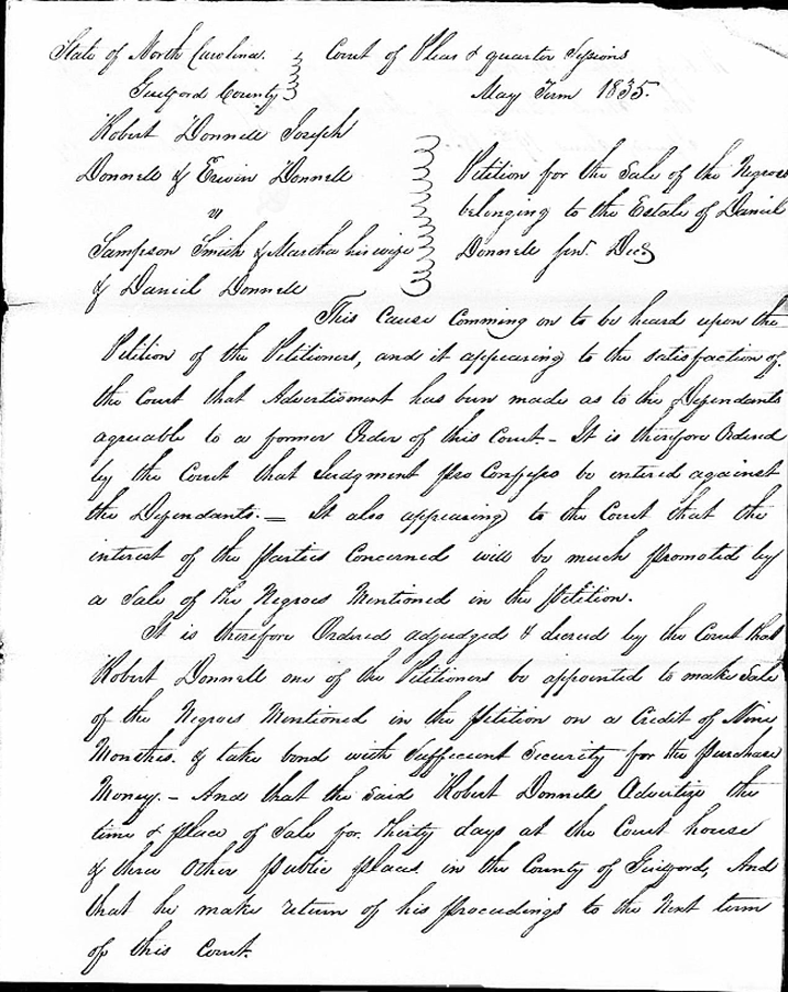 State of North Carolina. Court of Pleas & quarter Sessions
Guilford County May Term 1835.
Robert Donnell Joseph
Donnell & Erwin Donnell
vs
Sampson Smith & Martha his wife
& Daniel Donnell
Petition for the Sale of the Negroes
belonging to the Estate of Daniel
Donnell Senr. Decd
This Cause Comming on to be heard upon the
Petition of the Petitioners, and it appearing to the satisfaction of
the Court that Advertisment has been made as to the Defendants
agreable to a former Order of this Court. - It is therefore Ordered
by the Court that Judgment pro Confesso be entered against
the Defendants. — It also appearing to the Court that the
interest of the parties Concerned will be much promoted by
a Sale of the Negroes Mentioned in the Petition.
It is therefore Ordered adjudged & decreed by the Court that
Robert Donnell one of the Petitioners be appointed to make Sale
of the Negroes Mentioned in the Petition on a Credit of Nine
Monthes. & take bond with Sufficient Security for the purchase
Money. - And that the said Robert Donnell Advertize the
time & place of Sale for thirty days at the Court house
& three other public places in the County of Guilford, And
that he make return of his proceedings to the Next term
of this Court.